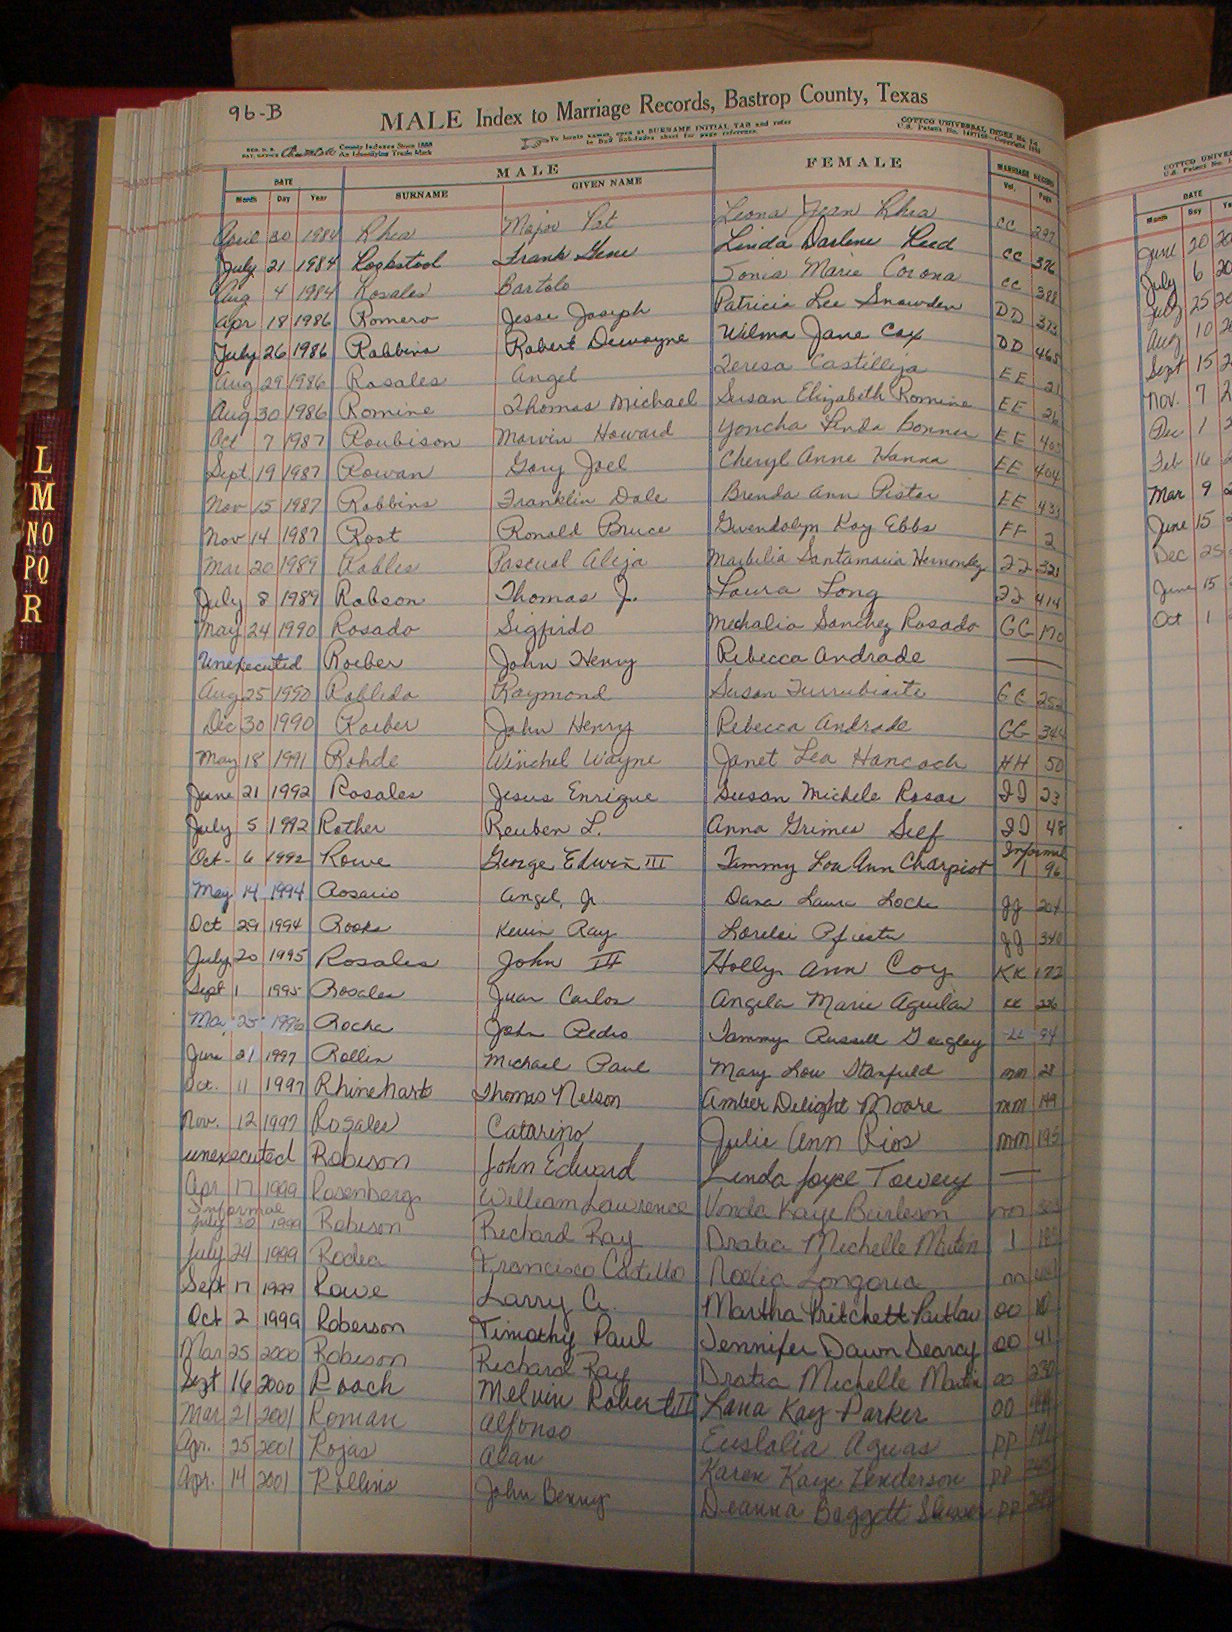 96-B
MALE Index to Marriage Records, Bastrop County, Texas
REG. U. S. PAT. OFFICE County Indexes Since 1888 An Identifying Trade Mark
To locate names, open at SURNAME INITIAL TAB and refer to Buff Sub-Index sheet for page reference.
COTTCO UNIVERSAL INDEX No. 14
U.S. Patent No. Copyright
DATE MALE FEMALE MARRIAGE RECORD
Month Day Year SURNAME GIVEN NAME Vol. Page
April 30 1984 Rhea Major Pat Leona Jean Rhea CC 297
July 21 1984 Rockstool Frank Gene Linda Darlene Reed CC 376
Aug 4 1984 Rosales Bartolo Sonia Marie Corona CC 388
Apr 18 1986 Romero Jesse Joseph Patricia Lee Snowden DD 373
July 26 1986 Robbins Robert Dewayne Wilma Jane Cox DD 465
Aug 29 1986 Rosales Angel Teresa Castilleja EE 21
Aug 30 1986 Romine Thomas Michael Susan Elizabeth Romine EE 26
Oct 7 1987 Roubison Marvin Howard Yoncha Linda Bonner EE 403
Sept 19 1987 Rowan Gary Joel Cheryl Anne Hanna EE 404
Nov 15 1987 Robbins Franklin Dale Brenda Ann Pistor EE 433
Nov 14 1987 Rost Ronald Bruce Gwendolyn Kay Ebbs FF 2
Mar 20 1989 Robles Pascual Alija Marbilia Santamaria Hernandez FF 321
July 8 1989 Robson Thomas J. Laura Long FF 414
May 24 1990 Rosado Sigfirdo Mechalia Sanchez Rosado GG 170
Unexecuted Roeber John Henry Rebecca Andrade —
Aug 25 1990 Robledo Raymond Susan Turrubiarte GG 252
Dec 30 1990 Roeber John Henry Rebecca Andrade GG 344
May 18 1991 Rohde Winchel Wayne Janet Lea Hancock HH 50
June 21 1992 Rosales Jesus Enrique Susan Michele Rosas II 23
July 5 1992 Rother Reuben L. Anna Grimes Self II 48
Oct. 6 1992 Rowe George Edwin III Tammy Lou Ann Charpiot Informal 1 96
May 14 1994 Rosario Angel, Jr. Dana Laura Locke JJ 204
Oct 29 1994 Rooks Kevin Ray Lorelei Pfiester JJ 340
July 20 1995 Rosales John III Holly Ann Coy KK 172
Sept 1 1995 Rosales Juan Carlos Angela Marie Aguilar KK 226
Ma 25 1996 Rocha John Pedro Tammy Russell LL 94
June 21 1997 Rollin Michael Paul Mary Lou Stanfield MM 28
Oct. 11 1997 Rhinehart Thomas Nelson Amber Delight Moore MM 149
Nov. 12 1997 Rosales Catarino Julie Ann Rios MM 195
unexecuted Robison John Edward Linda Joyce Towery —
Apr 17 1999 Rosenberg William Lawrence Vonda Kaye Burleson
Informal July 30 1999 Robison Richard Ray Dratia Michelle Martin 1
July 24 1999 Rodea Francisco Castillo Noelia Longoria
Sept 17 1999 Rowe Larry G. Martha Pritchett Partlow OO
Oct 2 1999 Roberson Timothy Paul Jennifer Dawn Searcy OO 41
Mar 25 2000 Robison Richard Ray Dratia Michelle Martin OO 230
Sept 16 2000 Roach Melvin Robert II Lana Kay Parker OO
Mar 21 2001 Roman Alfonso Eustolia Aguas PP
Apr. 25 2001 Rojas Alan Karen Kaye Henderson PP
Apr. 14 2001 Rollins John Benny Deanna Baggett PP
L
M
NO
PQ
R
COTTCO
U.S. Patent No.
DATE
Month Day
June 20
July 6
July 25
Aug 10
Sept 15
Nov. 7
Dec 1
Feb 16
Mar 9
June 15
Dec 25
June 15
Oct 1